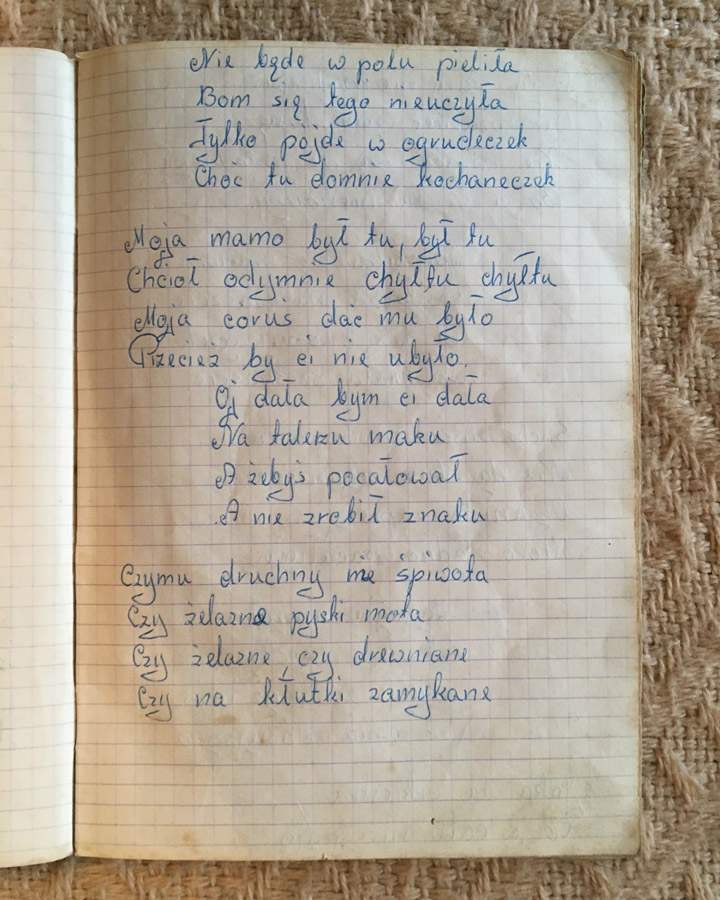 Nie będe w polu pieliła
Bom się tego nieuczyła
Tylko pójde w ogrudeczek
Choć tu domnie kochaneczek
Moja mamo był tu, był tu
Chcioł odymnie chyłtu chyłtu
Moja córuś dać mu było
Przecież by ci nie ubyło.
Oj dała bym ci dała
Na talerzu maku
A żebyś pocałował
A nie zrobił znaku
Czymu druchny nie śpiwota
Czy żelazne pyski mota
Czy żelazne, czy drewniane
Czy na kłutki zamykane